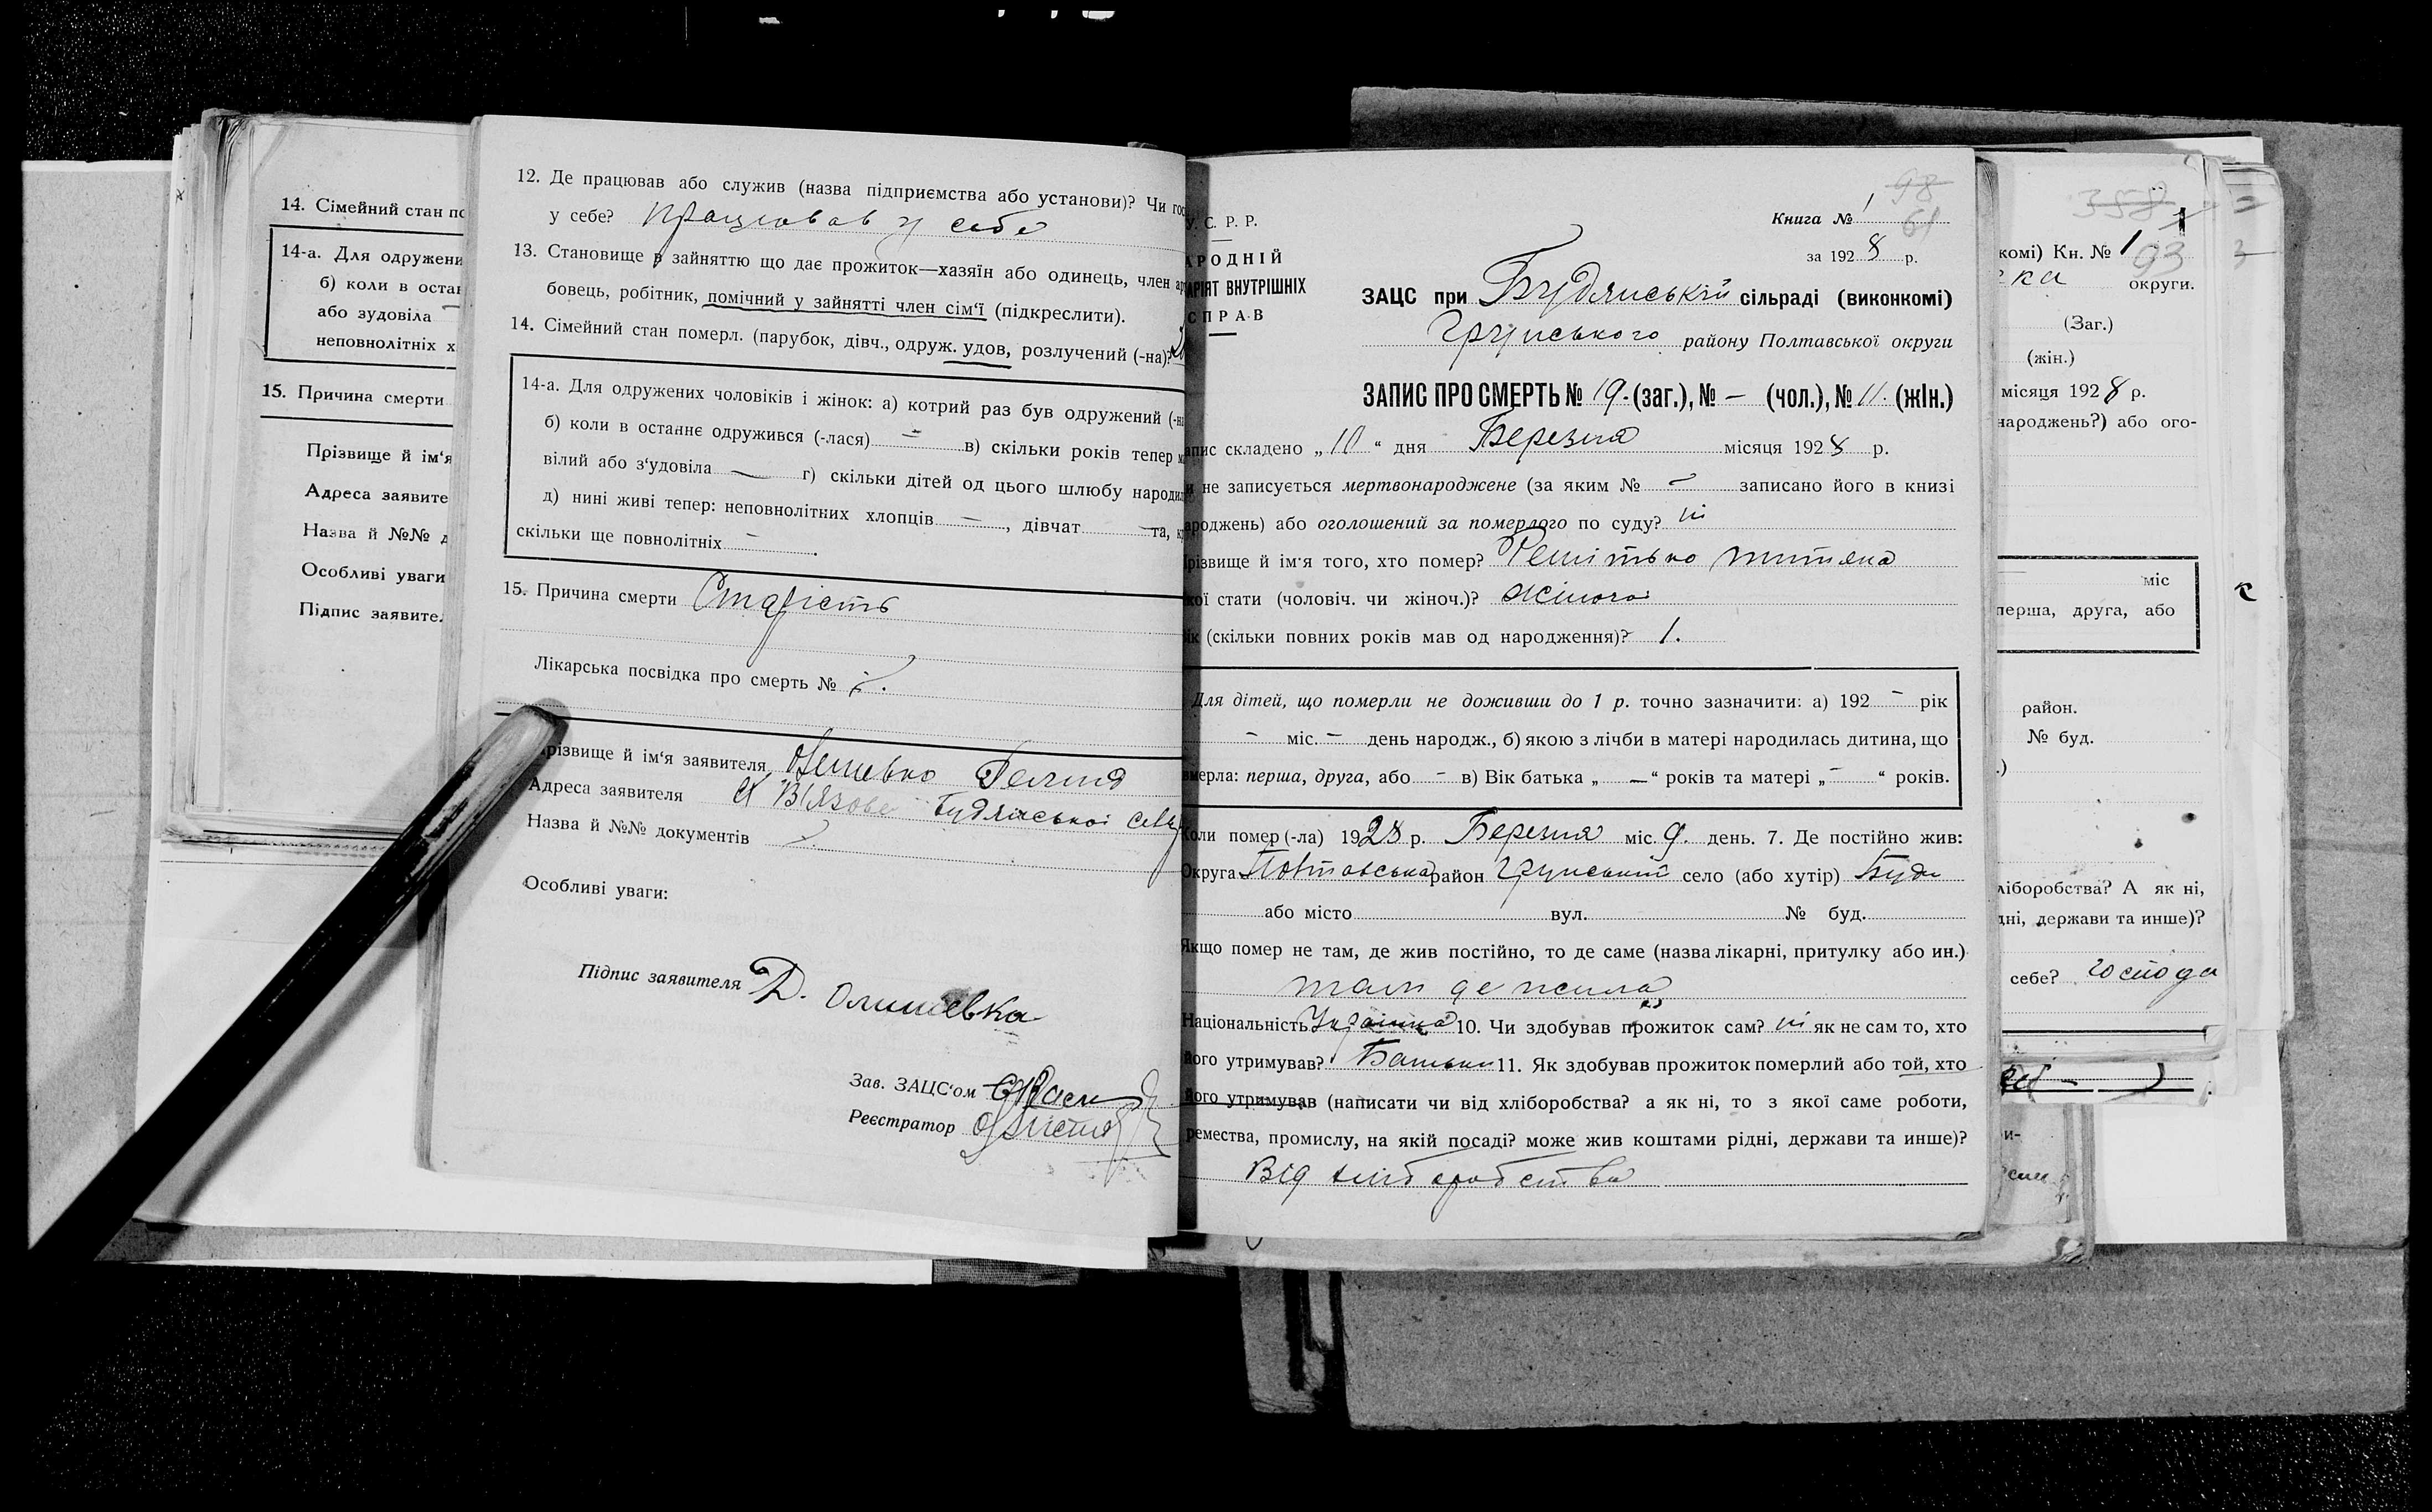 14. Сімейний стан по
14-а. Для одружени
б) коли в остан
або зудовіла
неповнолітніх х
15. Причина смерти
Прізвище й ім'я
Адреса заявите
Назва й №№ д
Особливі уваги
Підпис заявите
12. Де працював або служив (назва підприємства або установи)? Чи гос
у себе? працював у себе
13. Становище в зайняттю що дає прожиток—хазяїн або одинець, член ар
бовець, робітник, помічний у зайнятті член сім'ї (підкреслити).
14. Сімейний стан померл. (парубок, дівч., одруж. удов, розлучений (-на)?
14-а. Для одружених чоловіків і жінок: а) котрий раз був одружений (-на
б) коли в останнє одружився (-лася) — в) скільки років тепер м
вілий або з'удовіла — г) скільки дітей од цього шлюбу народил
д) нині живі тепер: неповнолітних хлопців —, дівчат — та, к
скільки ще повнолітніх — .
15. Причина смерти Старість
Лікарська посвідка про смерть №
різвище й ім'я заявителя
Адреса заявителя Будянської
Назва й №№ документів
Особливі уваги:
Підпис заявителя Д.
Зав. ЗАЦС'ом
Реєстратор
98
Книга № 1
61
за 1928 р.
У. С. Р. Р.
АРОДНІЙ
АРІЯТ ВНУТРІШНІХ
СПРАВ
ЗАЦС при Будянській сільраді (виконкомі)
Грунського району Полтавської округи
ЗАПИС ПРО СМЕРТЬ № 19. (заг.), № — (чол.), № 11. (жін.)
апис складено „10“ дня Березня місяця 1928 р.
и не записується мертвонароджене (за яким № — записано його в книзі
ароджень) або оголошений за померлого по суду? ні
різвище й ім'я того, хто помер? Решітько
кої стати (чоловіч. чи жіноч.)? жіночої
ік (скільки повних років мав од народження)? 1.
Для дітей, що померли не доживши до 1 р. точно зазначити: а) 192 — рік
— міс. — день народж., б) якою з лічби в матері народилась дитина, що
вмерла: перша, друга, або — в) Вік батька „ — “ років та матері „ — “ років.
Коли помер (-ла) 1928 р. Березня міс. 9. день. 7. Де постійно жив:
Округа Полтавська район Грунський село (або хутір) Буди
або місто вул. № буд.
Якщо помер не там, де жив постійно, то де саме (назва лікарні, притулку або ин.)
там де жила
Національність Українка 10. Чи здобував прожиток сам? ні як не сам то, хто
його утримував? Батьки 11. Як здобував прожиток померлий або той, хто
його утримував (написати чи від хліборобства? а як ні, то з якої саме роботи,
ремества, промислу, на якій посаді? може жив коштами рідні, держави та инше)?
Від хліборобства
358
комі) Кн. № 1
93
ка округи.
(Заг.)
(жін.)
місяця 1928 р.
народжень?) або ого-
міс
перша, друга, або
район.
№ буд.
.)
ліборобства? А як ні,
дні, держави та инше)?
себе?
и-